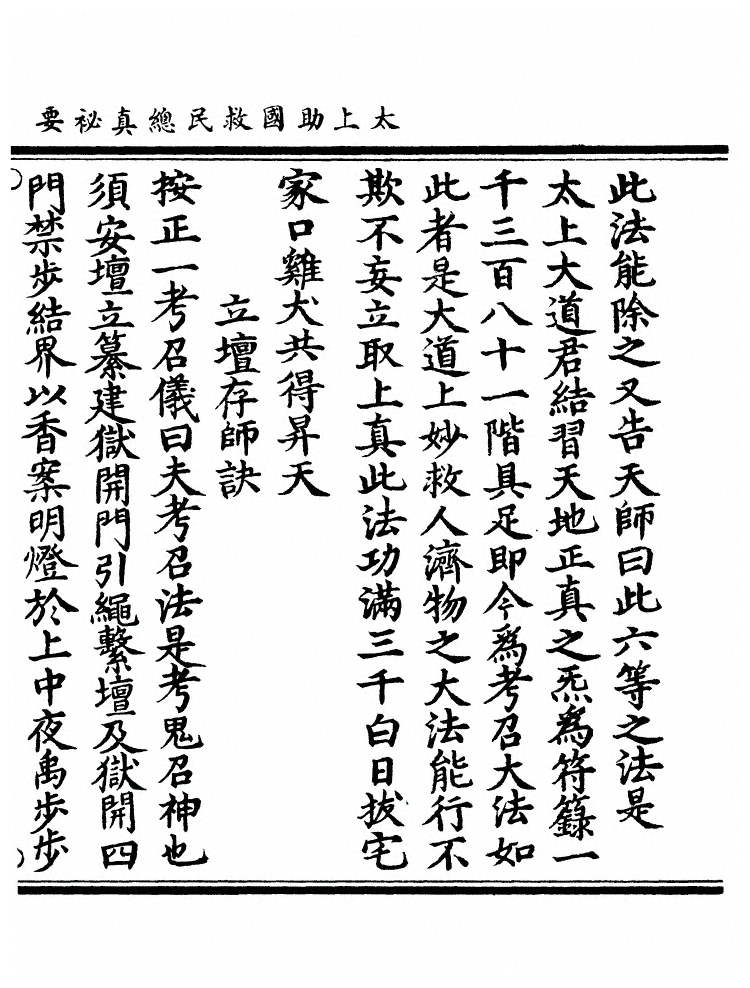 太上助國救民總真祕要
此法能除之又告天師曰此六等之法是
太上大道君結習天地正真之炁爲符籙一
千三百八十一階具足即今爲考召大法如
此者是大道上妙救人濟物之大法能行不
欺不妄立取上真此法功滿三千白日拔宅
家口雞犬共得昇天
立壇存師訣
按正一考召儀曰夫考召法是考鬼召神也
須安壇立纂建獄開門引繩繫壇及獄開四
門禁步結界以香案明燈於上中夜禹步步